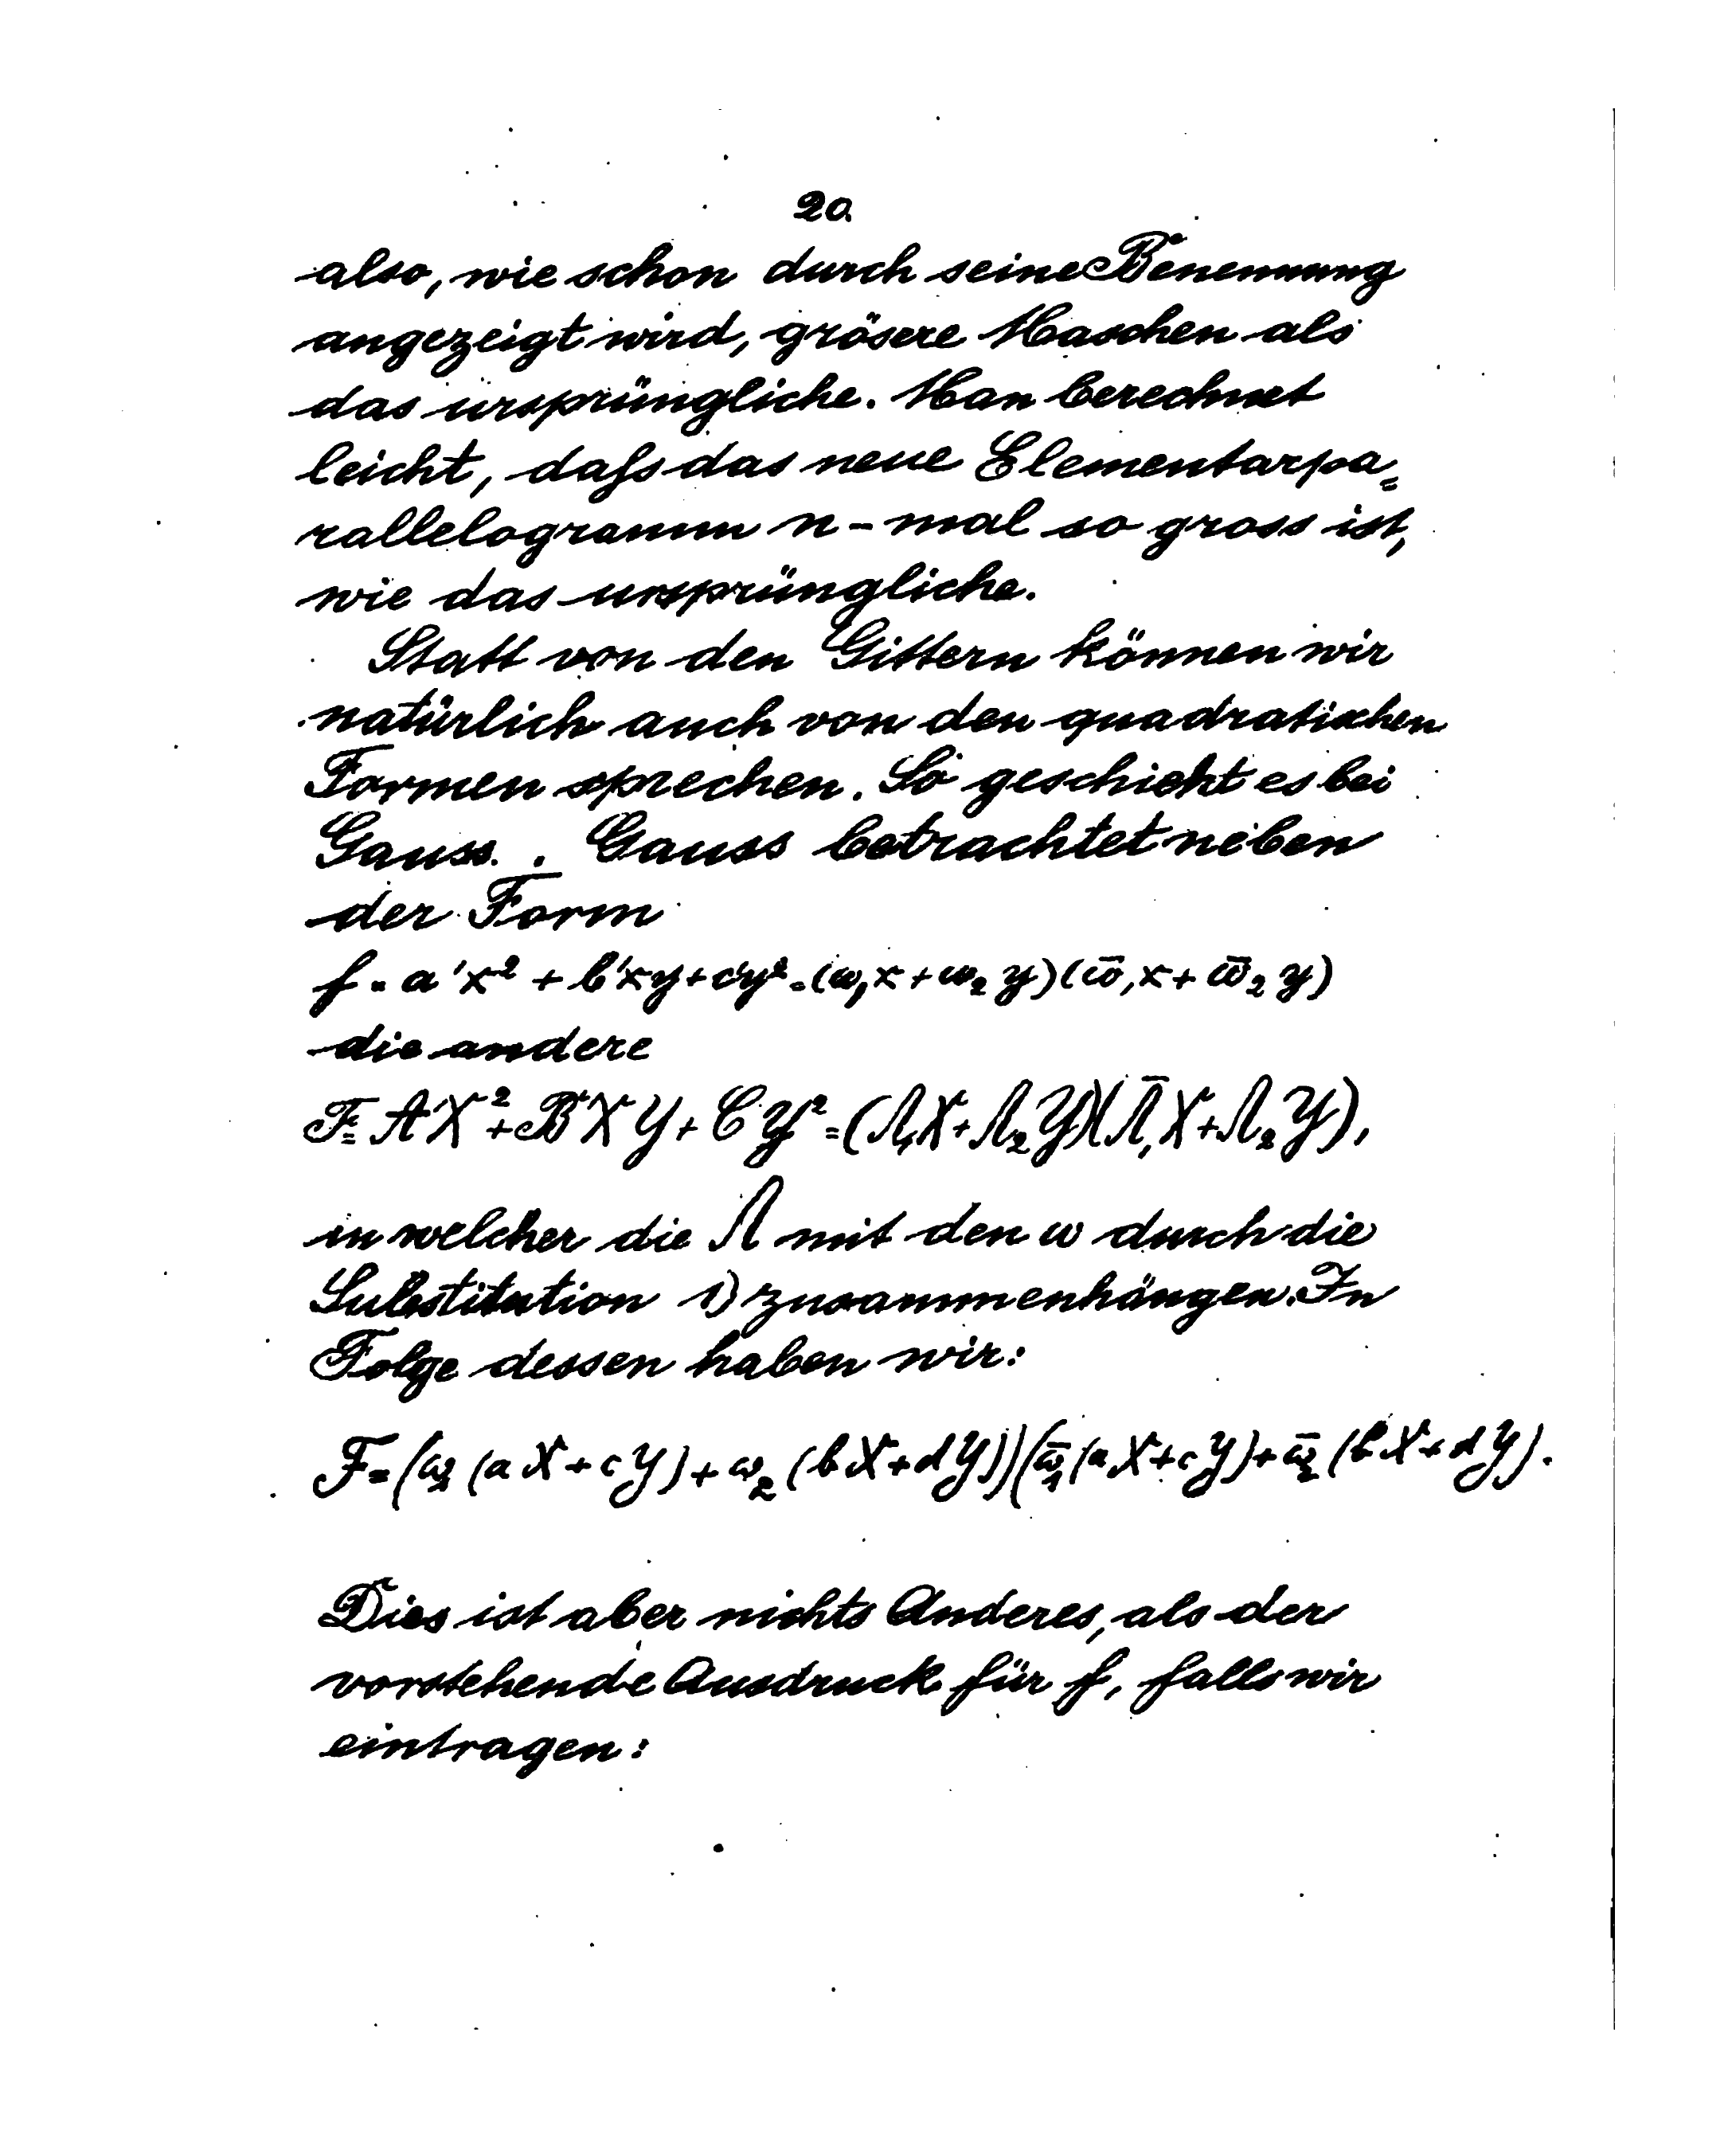 20.
also, wie schon durch seine Benennung
angezeigt wird, grösere Maschen als
das ursprüngliche. Man berechnet
leicht, dafs das neue Elementarpa=
rallelogramm n-mal so gross ist,
wie das ursprüngliche.
Statt von den Gittern können wir
natürlich auch von den quadratischen
Formen sprechen. So geschieht es bei
Gauss. . Gauss betrachtet neben
der Form
f = a'x² + b'xy + c'y² = (ω₁x + ω₂y)(ω̄₁x + ω̄₂y)
die andere
F = AX² + BXY + CY² = (Λ₁X + Λ₂Y)(Λ̄₁X + Λ₂Y),
in welcher die Λ mit den ω durch die
Substitution 1) zusammenhängen. In
Folge dessen haben wir:
F = (ω₁(aX + cY) + ω₂(bX + dY))(ω̄₁(aX + cY) + ω̄₂(bX + dY).
Dies ist aber nichts Anderes, als der
vorstehende Ausdruck für f, falls wir
eintragen: